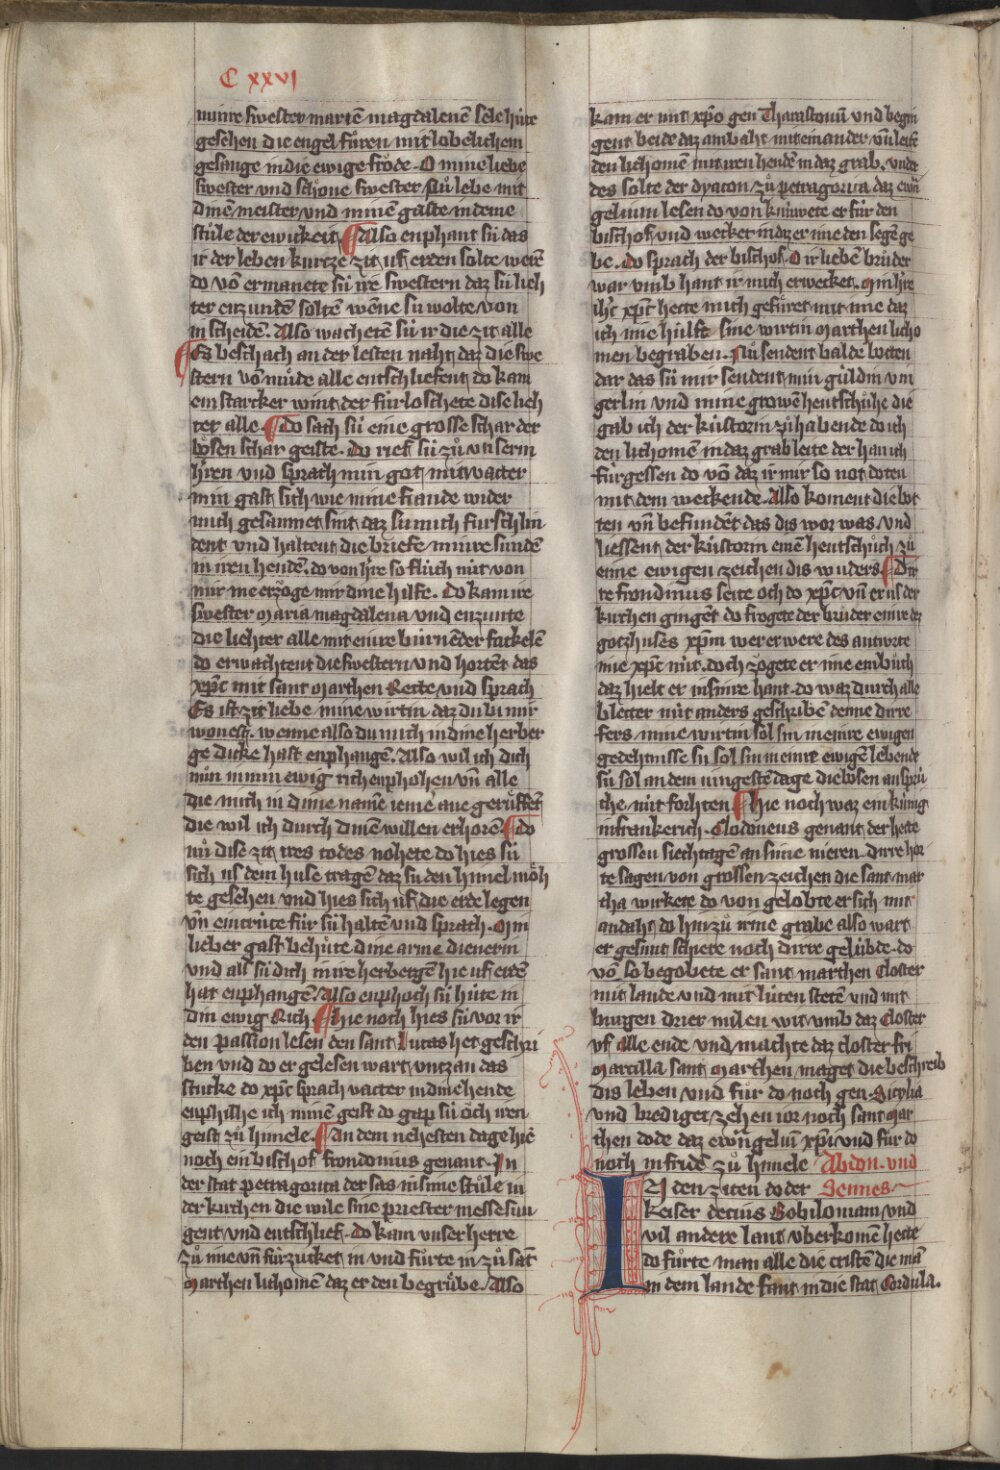 C xxvi
minre swester marien magdalenē sele hüte
gesehen die engel fůren mit lobelichem
gesange in die ewige frőde · O mine liebe
swester und schőne swester nů lebe mit
dinē meister und minē gaste in deme
stůle der ewickeit ¶ Also enphant sü das
ir der leben kurcze zit uf erden solte werē
do vō ermanete sü ire swestern daz sü lieh
ter enzundē soltē wēne sü wolte von
in scheidē · Also wachetē sü ir die zit alle
¶ Es beschach an der lesten naht daz die swe
stern vō můde alle entschliefent do kam
ein starcker wint der fürloschete dise lieh
ter alle · ¶ Do sach sü eine grosse schar der
bősen schar geiste · Do rief sü zů unserm
h'ren und sprach min got min vatter
min gast sich wie mine fiande wider
mich gesamnet sint daz su mich fürschlin
dent und haltent die briefe minre sündē
in iren hendē · do von h're so flüch nüt von
mir me erzőge mir dine hilfe · Do kam ire
swester Maria magdalena und enzunte
die liehter alle mit einre burnēder fackelē
do erwachtent die swestern und hortēt das
xp̄c mit sant Marthen Rette und sprach
Es ist zit liebe mine wirtin daz du bi mir
wonest · wenne also du mich in dine herber
ge dicke hast enphangē · Also wil ich dich
nůn in min ewig rich enphohen vn̄ alle
die mich in dime namē ieme āne gerůffēt
die wil ich durch dinē willen erhorē · ¶ do
nů dise zit ires todes nohete do hies sü
sich us dem huse tragē daz sü den himel mőh
te gesehen und hies sich uf die erde legen
vn̄ ein crütze für sü haltē und sprach · Min
lieber gast behüte dine arme dienerin
und als sü dich in ire herbergē hie uf erdē
hat enphangē · Also enphoch sü hüte in
din ewig Rich · ¶ hie noch hies sü vor ir
den passion lesen den sant Lucas het geschri
ben und do er gelesen wart untz an das
stucke do xp̄c sprach vatter in dine hende
enphilhe ich minē geist do gap sü ǒch iren
geist zů himele · ¶ An dem nehesten dage hie
noch ein bischof frondonius genant · In
der stat petragorita der sas in sime stůle in
der kirchen die wile sine priester messe sun
gent und entschlief · Do kam unser herre
zů ime vn̄ fürzucket in und fůrte in zů sāt
Marthen lichomē daz er den begrůbe · Also
kam er mit xp̄o gen Tharasconū und begin
gent beide daz ambaht mit einander vn̄ leite
den lichomē mit iren hendē in daz grab · Under
des solte der dyacon zů petragorica daz ewā
gelium lesen do von knüwete er für den
bischof und wecket in daz er ime den segē ge
be · do sprach der bischof · O ir liebē brůder
war umb hant ir mich erwecket · Min h're
ih'c xp̄c hette mich gefůret mit ime daz
ich ime hülfe sine wirtin Marthen licho
men begraben · Nů sendent balde botten
dar das sü mir sendent min güldin vin
gerlin und mine growē hentschůhe die
gab ich der küstorin zů habende do ich
den lichomē in daz grab leite der han ich
fürgessen do vō daz ir mir so not doten
mit dem weckende · Also koment die bot
ten vn̄ befundēt das dis wor was und
liessent der küstorin einē hentschůch zů
eime ewigen zeichen dis wnders · ¶ Dir
re frondinus seite och do xp̄c vn̄ er us der
kirchen gingēt do frogete der brůder einre dez
gotzhuses xp̄m wer er were des antwrte
ime xp̄c nüt · doch zőgete er ime ein bůch
daz hielt er in sinre hant · do waz durch alle
bletter nüt anders geschribē denne dirre
fers mine wirtin sol sin in einre ewigen
gedehtnisse sü sol sin in einre ewigē lebende
sü sol an dem iungestē dage die bősen an sprü
che nüt fohrten ¶ hie noch waz ein künig
in frankerich · Clodoneus genant der hette
grossen siechtagē an sime nieren · Dirre hor
te sagen von grossen zeichen die sant mar
tha wirkete do von gelobte er sich mit
andaht do hin zů irme grabe also wart
er gesunt schiere noch dirre gelübde · do
vō so begobete er sant marthen Closter
mit lande und mit lüten stetē und mit
burgen drier milen wit umb daz Closter
uf alle ende und machte daz closter fri
Marcilla sant Marthen maget die beschreib
dis leben und fůr do noch gen · Sicylia
und brediget zehen ior noch sant Mar
then dode daz ewāgeliū xp̄i und für do
noch in fride zů himele Abdon · und
IN den ziten do der Sennes
keiser decius Bobiloniam und
vil andere lant überkomē hette
do fůrte man alle die cristē die mā
in dem lande fant in die stat Cordula ·